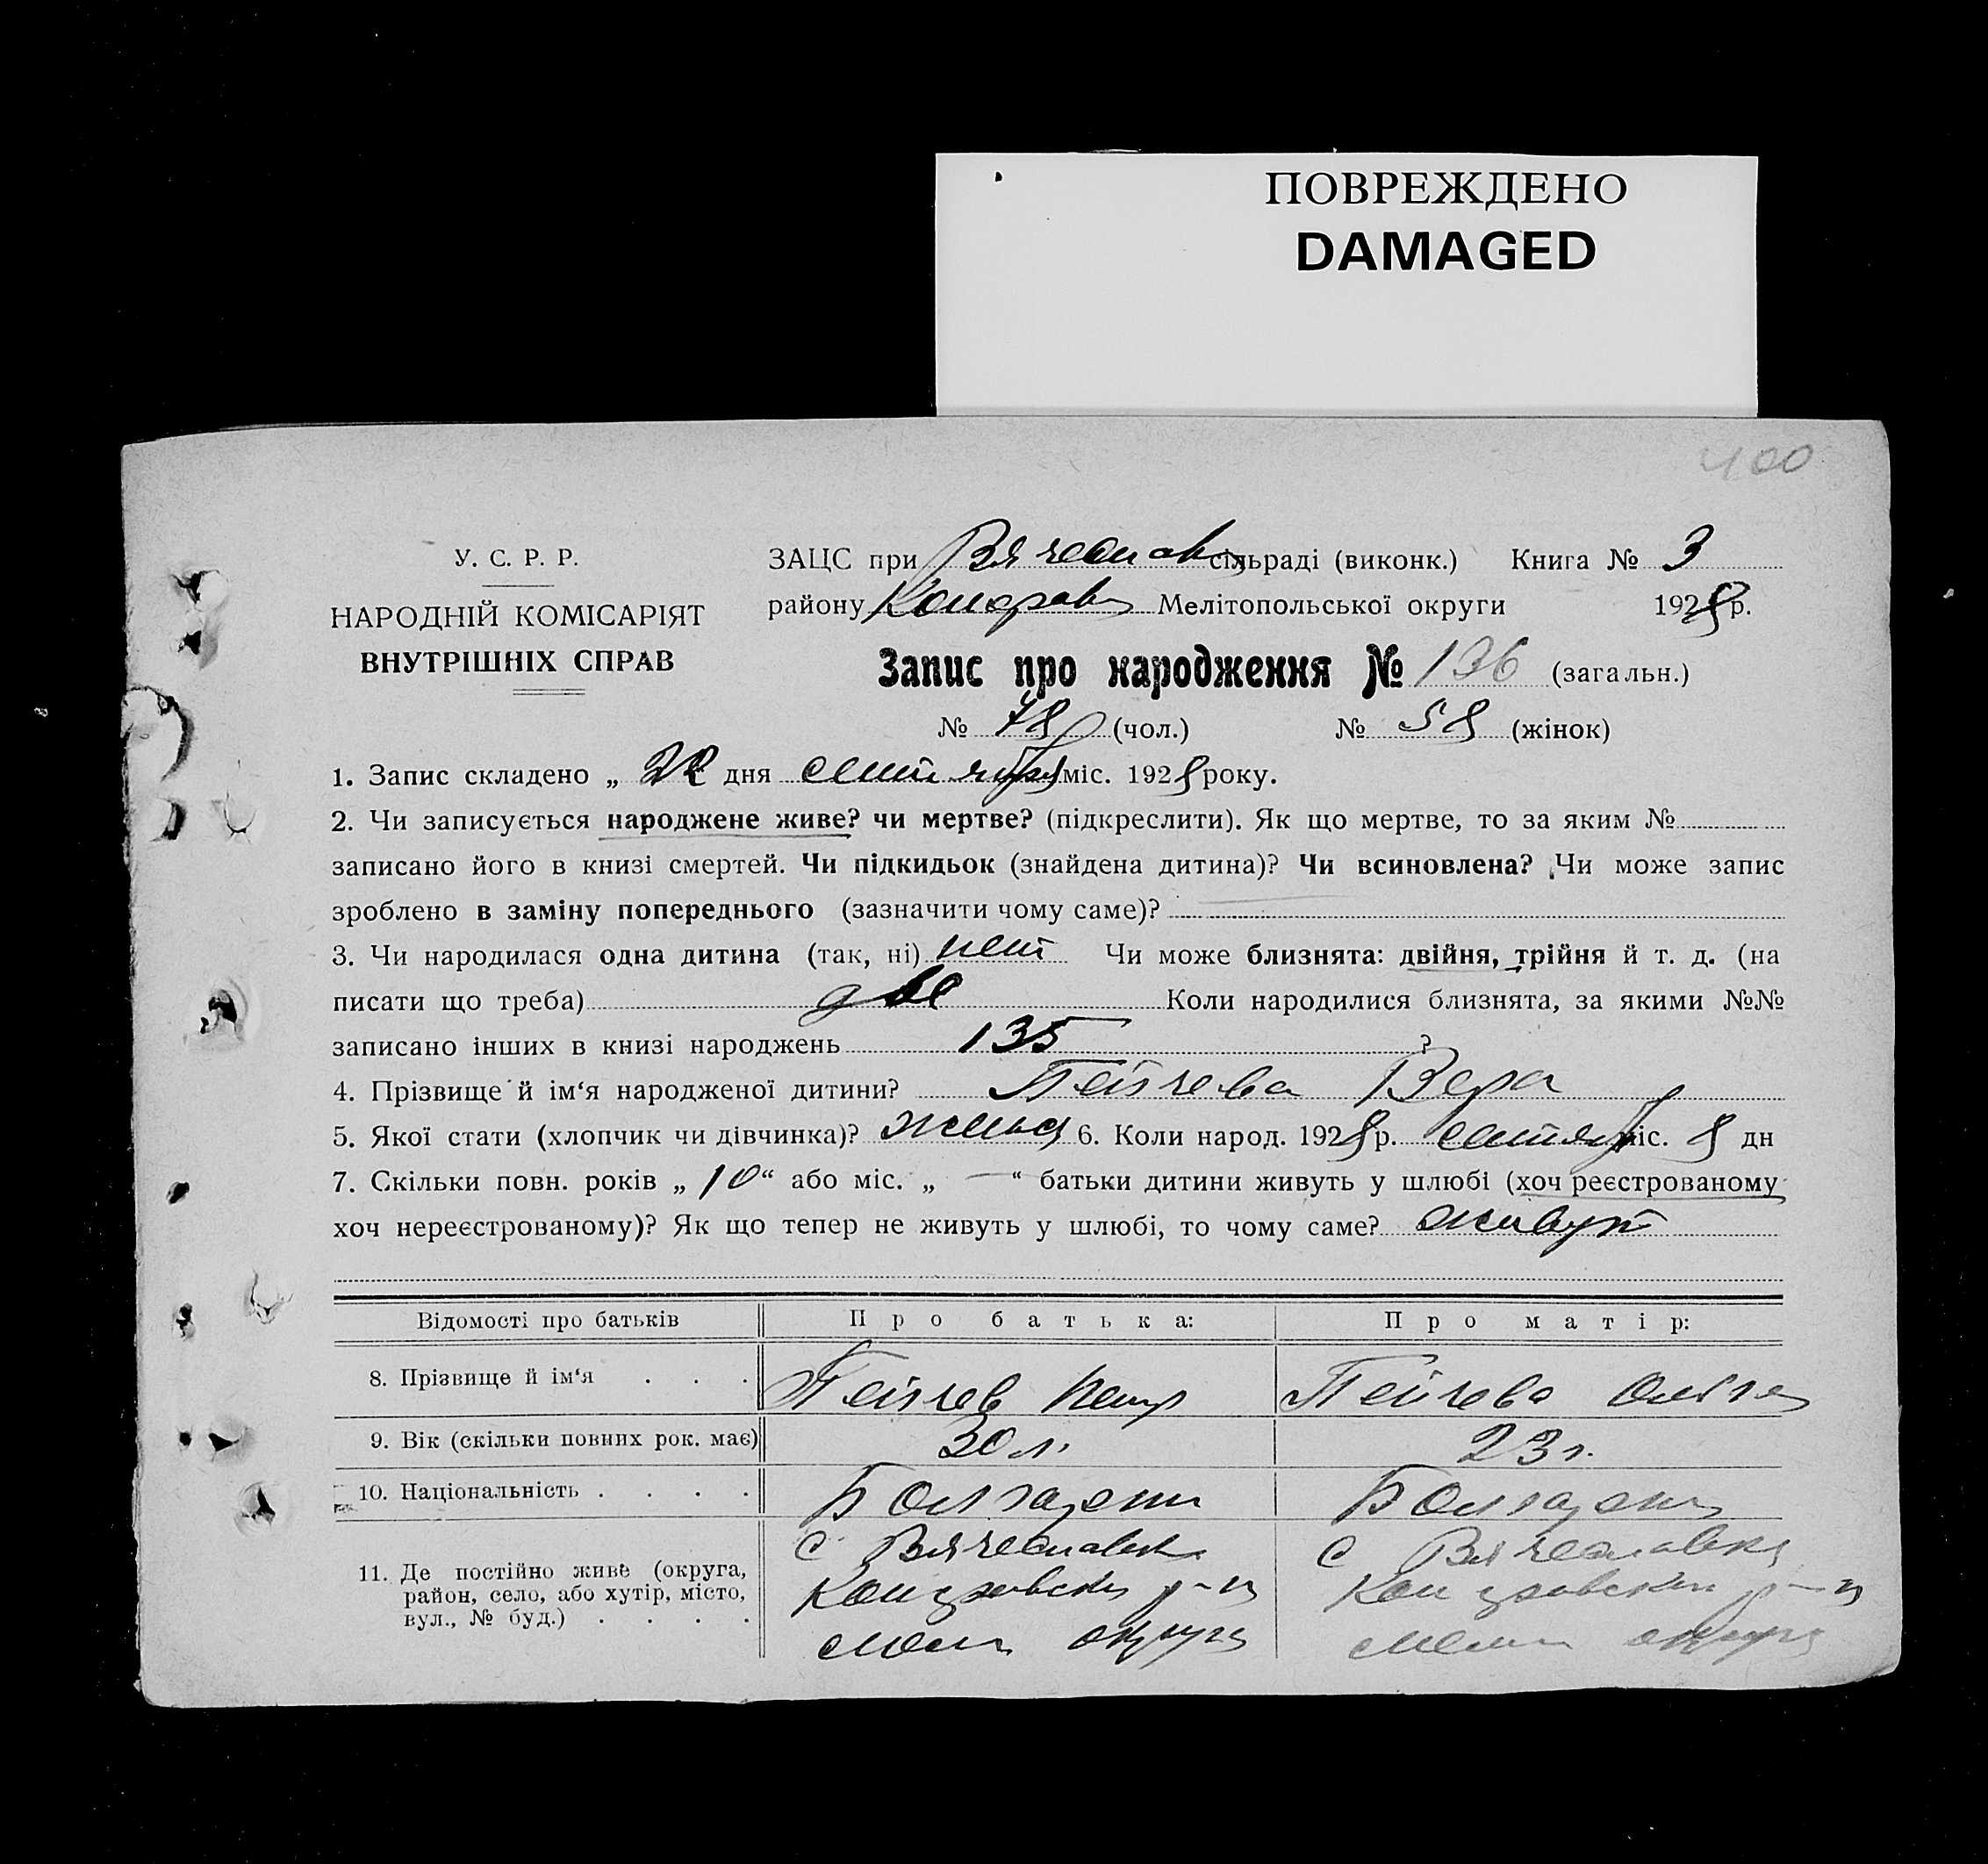 ПОВРЕЖДЕНО
DAMAGED
400
У. С. Р. Р.
НАРОДНІЙ КОМІСАРІЯТ
ВНУТРІШНІХ СПРАВ
ЗАЦС при Вячеслав сільраді (виконк.) Книга № 3
району Мелітопольської округи 1928 р.
Запис про народження № 136 (загальн.)
№ 78 (чол.) № 58 (жінок)
1. Запис складено „ 22 дня сентября міс. 1928 року.
2. Чи записується народжене живе? чи мертве? (підкреслити). Як що мертве, то за яким №
записано його в книзі смертей. Чи підкидьок (знайдена дитина)? Чи всиновлена? Чи може запис
зроблено в заміну попереднього (зазначити чому саме)?
3. Чи народилася одна дитина (так, ні) нет Чи може близнята: двійня, трійня й т. д. (на
писати що треба) две Коли народилися близнята, за якими №№
записано інших в книзі народжень 135 ?
4. Прізвище й ім‘я народженої дитини? Пейчева Вера
5. Якої стати (хлопчик чи дівчинка)? 6. Коли народ. 1928 р. сентяб міс. 8 дн
7. Скільки повн. років „ 10 “ або міс. „ — “ батьки дитини живуть у шлюбі (хоч реєстрованому
хоч нереєстрованому)? Як що тепер не живуть у шлюбі, то чому саме? живут
Відомості про батьків Про батька: Про матір:
8. Прізвище й ім‘я . . . Пейчев Петр Пейчева Ольга
9. Вік (скільки повних рок. має) 30 л. 23 г.
10. Національність . . . . Болгарин Болгарк
11. Де постійно живе (округа, район, село, або хутір, місто, вул., № буд.) . . . .
с Вячеславка
р-н
Мел округи
с Вячеславка
р-н
Мел округи